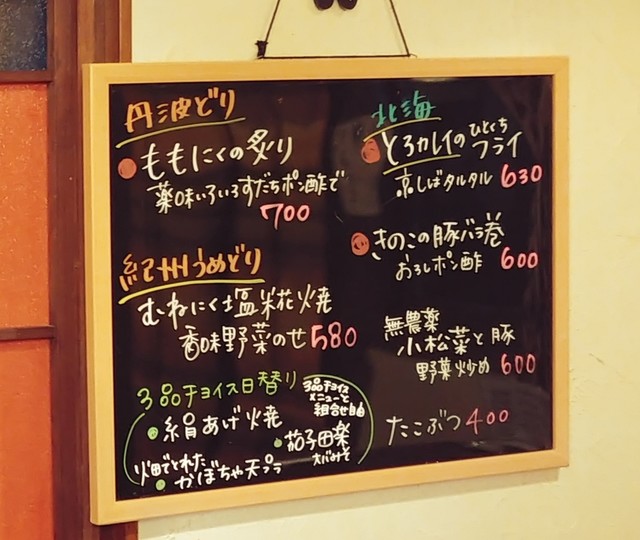 丹波どり
ももにくの炙り
薬味いろいろすだちポン酢で
700
紀州うめどり
むねにく塩糀焼
香味野菜のせ580
3品チョイス日替り
絹あげ焼
畑でとれた
かぼちゃ天プラ
3品チョイス
メニューと
組合せ自由
茄子田楽
大バみそ
北海
とろカレイのひとくち
フライ
京しばタルタル 630
きのこの豚バラ巻
おろしポン酢 600
無農薬
小松菜と豚
野菜炒め 600
たこぶつ 400